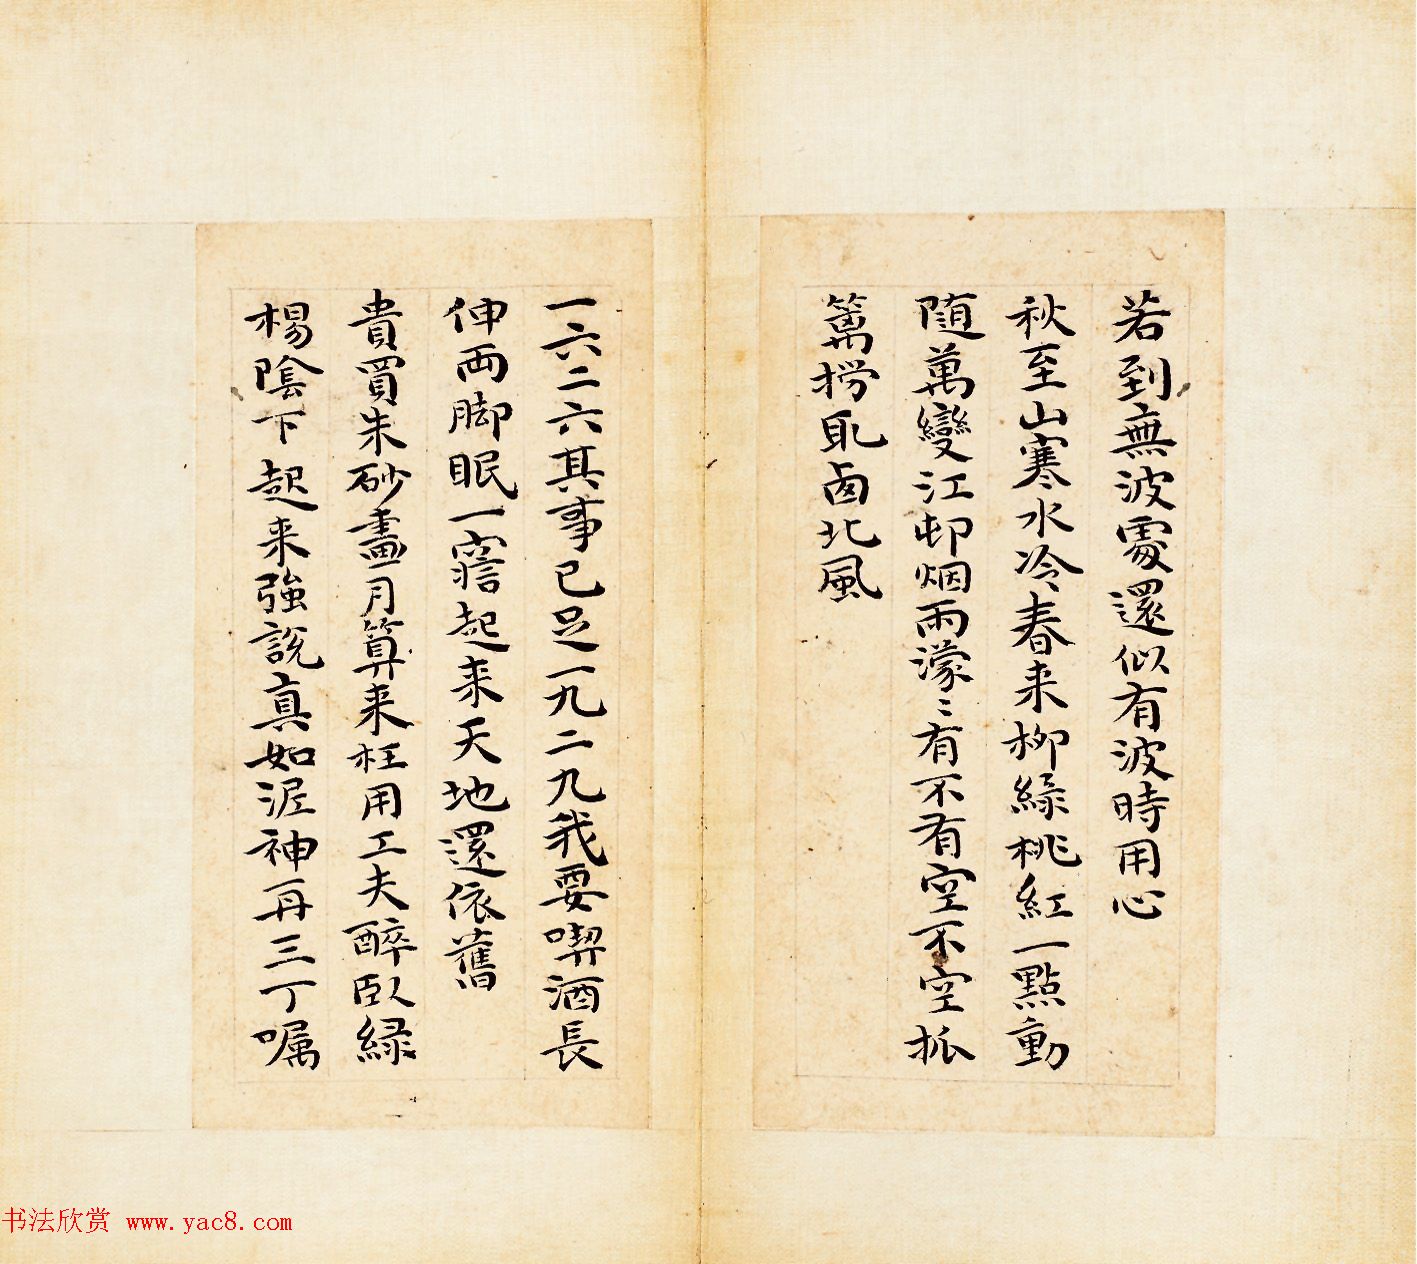 若到無波處還似有波時用心
秋至山寒水冷春来柳綠桃紅一點動
随萬變江邨烟雨濛〻有不有空不空笊
篱捞取西北風
一六二六其事已足一九二九我要喫酒長
伸両脚眠一寤起来天地還依舊
貴買朱砂畫月算来枉用工夫醉臥綠
楊陰下起来強説真如泥神再三丁嘱
书法欣赏 www.yac8.com